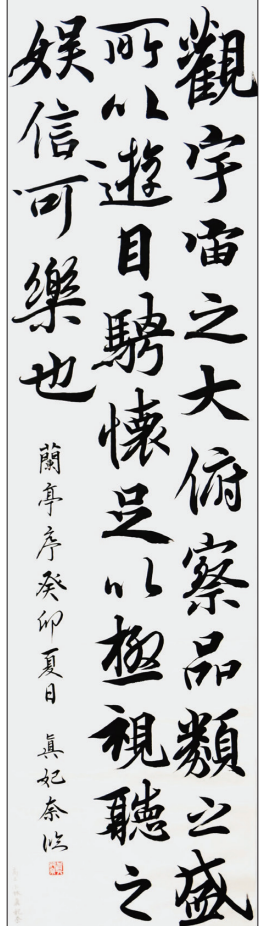 觀宇宙之大俯察品類之盛
所以遊目騁懷足以極視聽之
娯信可樂也
蘭亭序癸卯夏日 真妃奈臨